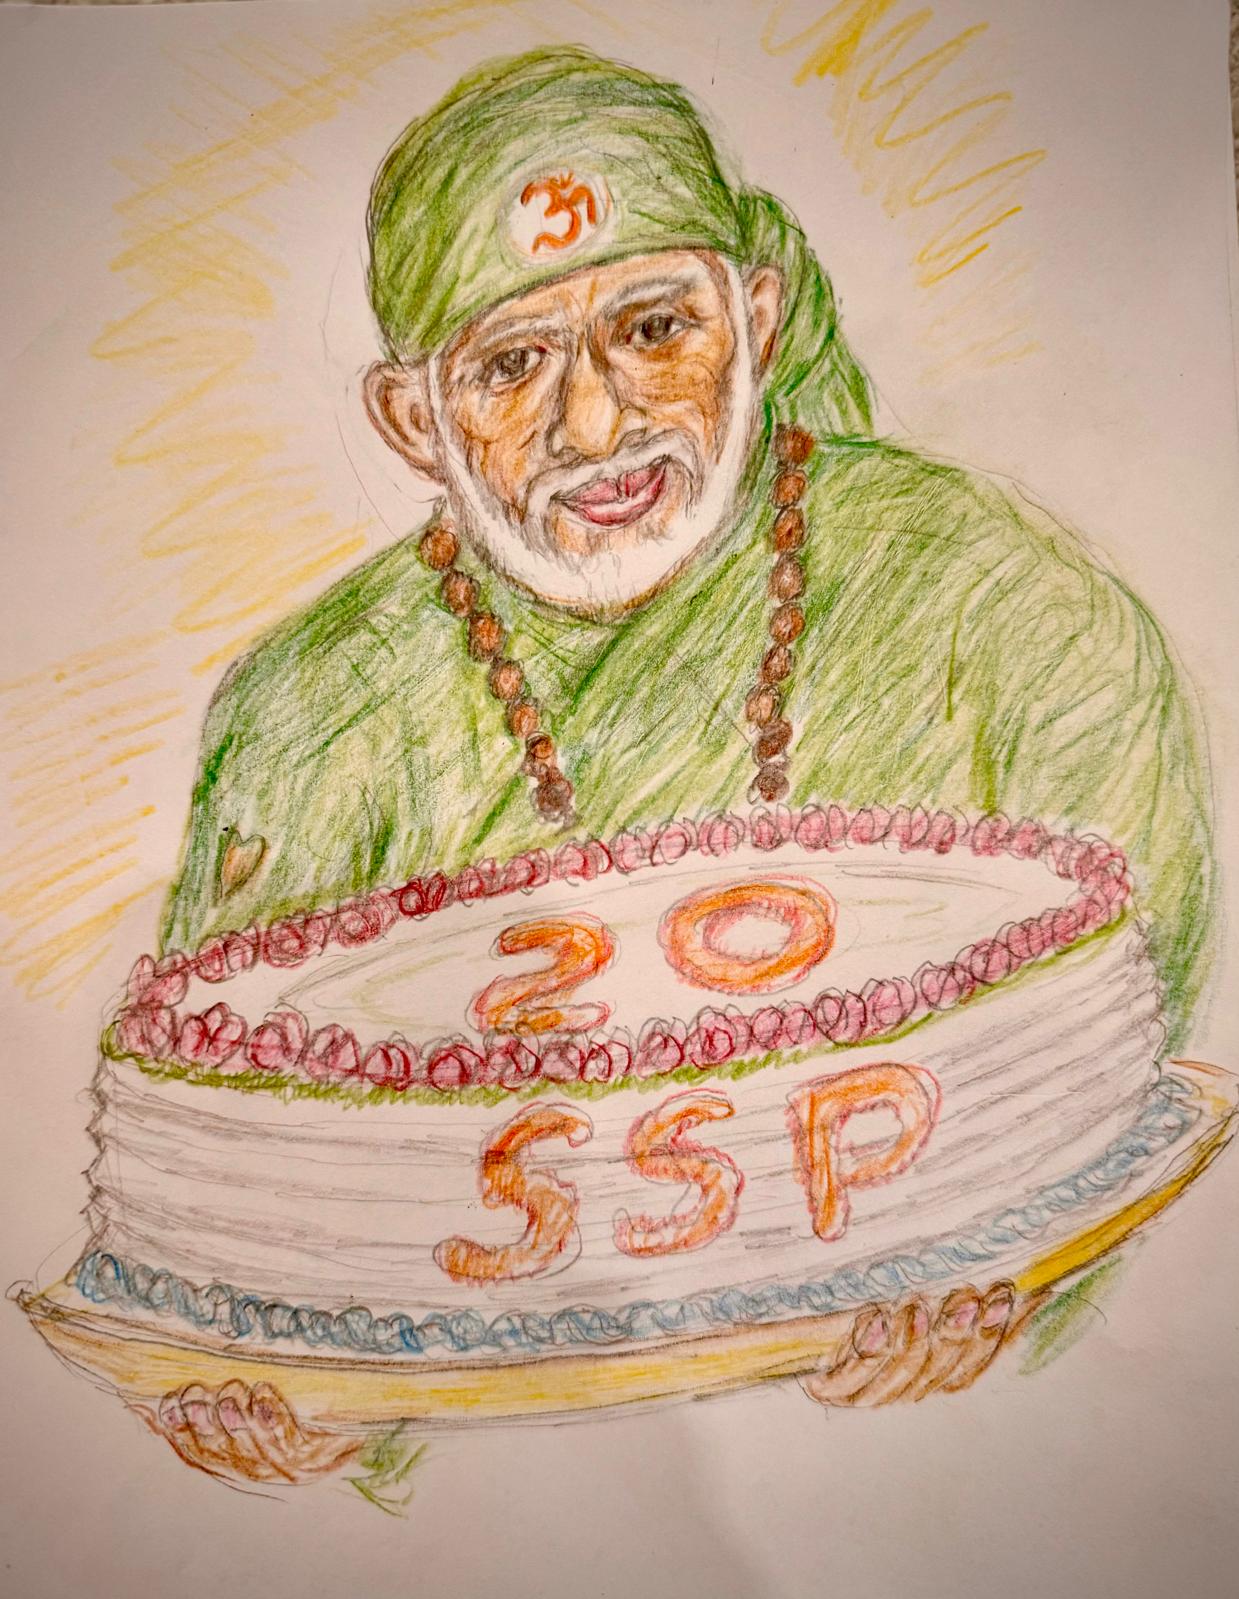 ॐ
20
SSP